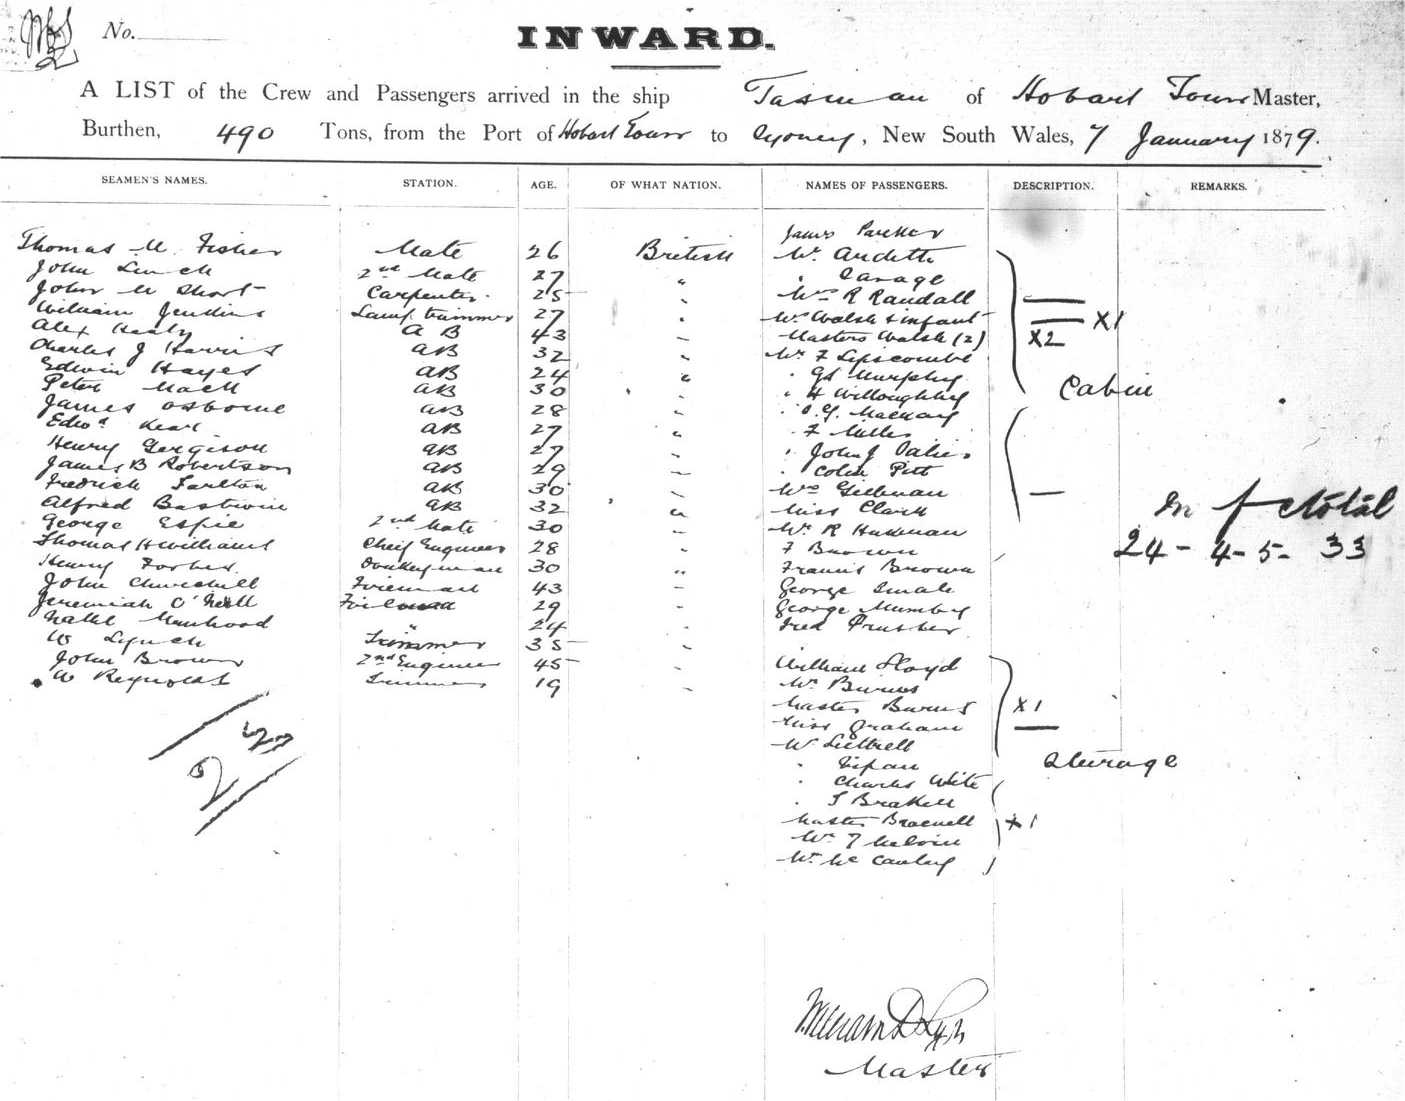 No.
INWARD.
A LIST of the Crew and Passengers arrived in the ship Tasman of Hobart Town Master,
Burthen, 490 Tons, from the Port of Hobart Town to Sydney, New South Wales, 7 January 1879.
SEAMEN'S NAMES. STATION. AGE. OF WHAT NATION. NAMES OF PASSENGERS. DESCRIPTION. REMARKS.
James Parker
Thomas M. Fisher Mate 26 British Mr
John Lynch 2nd Mate 27 " " Savage
John M Short Carpenter 25 " Mrs R Randall
William Jenkins Lamp trimmer 27 " Mrs Walsh & infant X1
Alex Healy A B 43 " Masters Walsh (2) X2
Charles J Harris AB 32 " Mr F Lipscombe
Edwin Hayes AB 24 " " Murphy
Peter Mack AB 30 " " H Willoughby Cabin
James Osborne AB 28 " " Mackay
Edwd AB 27 " F Miller
Henry AB 27 " " John J Davies
James B Robertson AB 29 " " Colin Pitt
Fredrick Tarlton AB 30 " Mrs Gillman
Alfred AB 32 " Miss Clark
George Espie 2nd Mate 30 " Mr R
Thomas H Williams Cheif Engineer 28 " F Brown
Henry Forbes Donkeyman 30 " Francis Brown
John Churchill Fireman 43 " George
Jeremiah O'Neill 29 " George Mumby
24 Fred
W Lynch Trimmer 35 "
John Brown 2nd Engineer 45 " William Lloyd
W Reynolds Trimmer 19 " Mr Burns
23
Master Burns X1
Miss Graham
Mr Luttrell
" Steerage
" Charles White
" T
Master X1
Mr T Melvin
Mr McCauley
In f total
24 - 4 - 5 - 33
Master